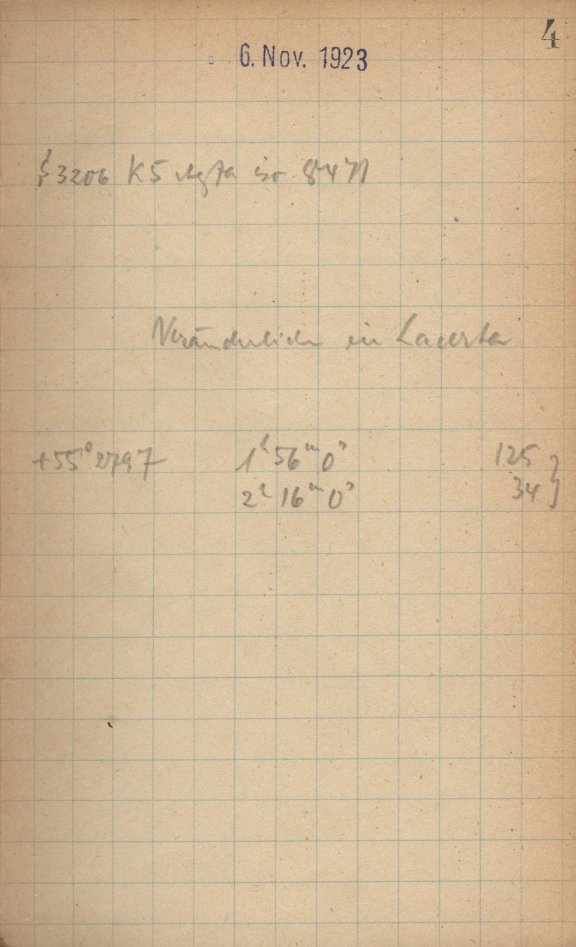 4
6. Nov. 1923
3206 K5 Agfa iso
Veränderliche in Lacerta
+55° 2797 1ʰ 56ᵐ 0ˢ 125 }
2ʰ 16ᵐ 0ˢ 34 }